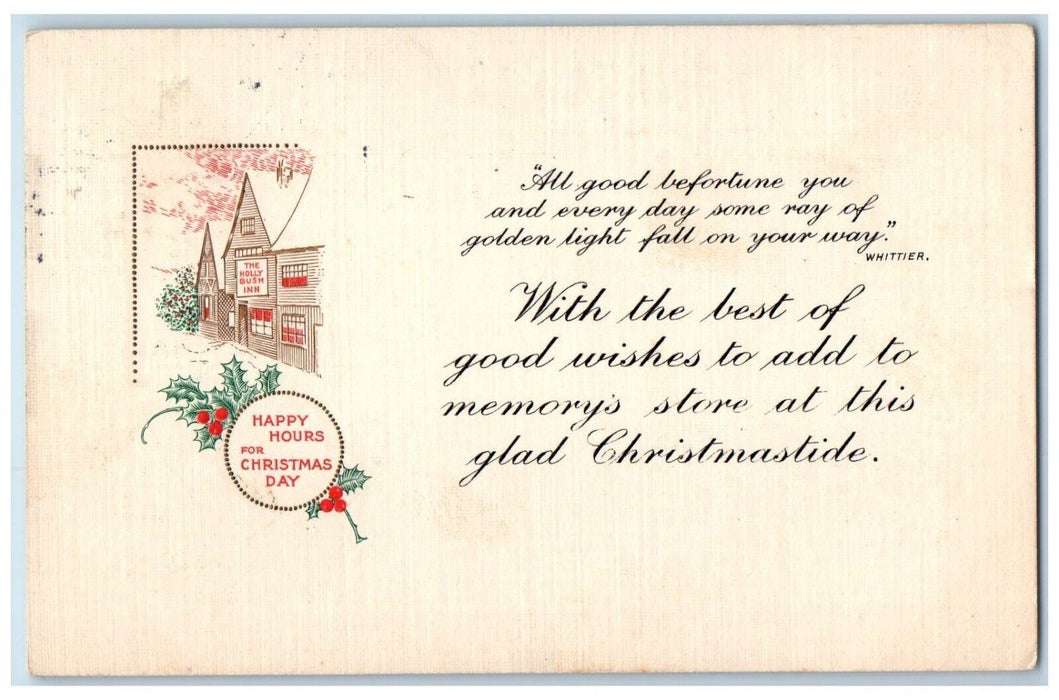 THE
HOLLY
BUSH
INN
HAPPY
HOURS
FOR
CHRISTMAS
DAY
"All good befortune you
and every day some ray of
golden light fall on your way."
WHITTIER.
With the best of
good wishes to add to
memory's store at this
glad Christmastide.